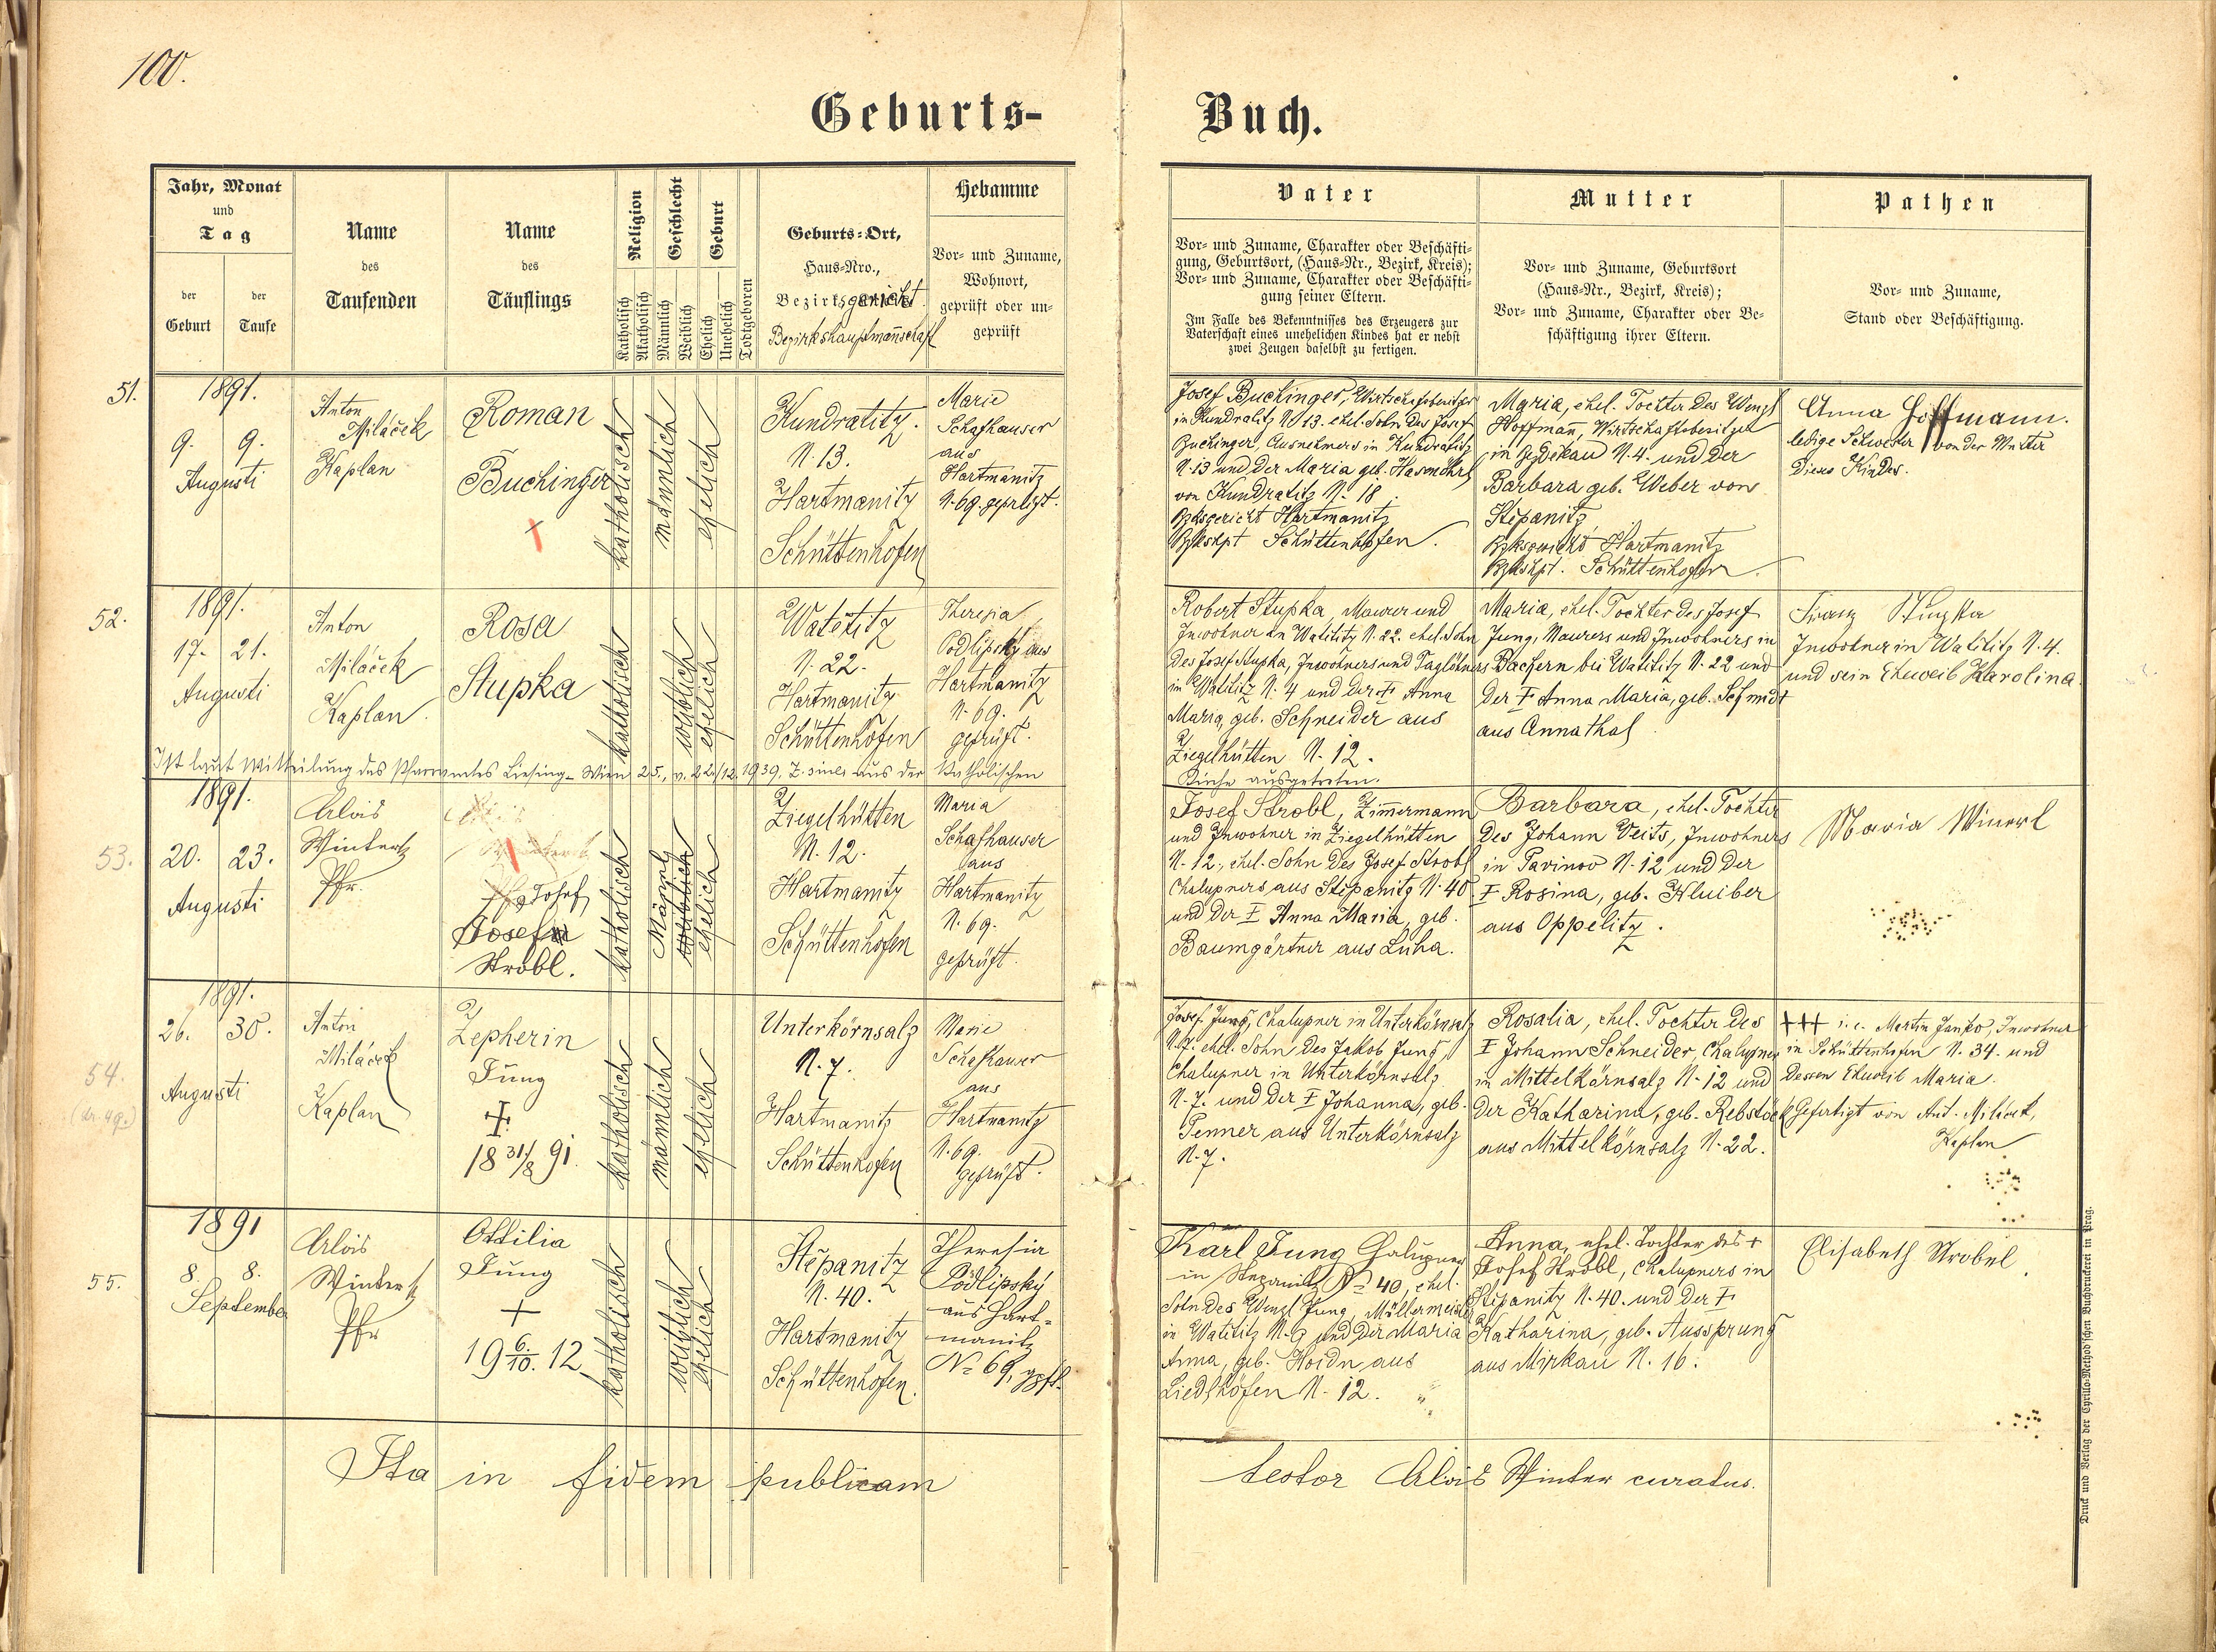 100.
Geburts-
Buch.
Jahr, Monat
und
Tag
der
Geburt
der
Taufe
Name
des
Taufenden
Name
des
Täuflings
Religion
Katholisch
Akatholisch
Geschlecht
Männlich
Weiblich
Geburt
Ehelich
Unehelich
Todtgeboren
Geburts-Ort,
Haus-Nro.,
Bezirksgericht
Bezirkshauptmannschaft
Hebamme
Vor- und Zuname,
Wohnort,
geprüft oder un-
geprüft
Vater
Vor- und Zuname, Charakter oder Beschäfti-
gung, Geburtsort, (Haus-Nr., Bezirk, Kreis);
Vor- und Zuname, Charakter oder Beschäfti-
gung seiner Eltern.
Im Falle des Bekenntnisses des Erzeugers zur
Vaterschaft eines unehelichen Kindes hat er nebst
zwei Zeugen daselbst zu fertigen.
Mutter
Vor- und Zuname, Geburtsort
(Haus-Nr., Bezirk, Kreis);
Vor- und Zuname, Charakter oder Be-
schäftigung ihrer Eltern.
Pathen
Vor- und Zuname,
Stand oder Beschäftigung.
51.
1891.
9. 9.
Augusti
Anton
Miláček
Kaplan
Roman
Buchinger
katholisch
männlich
ehelich
Kundratitz.
N. 13.
Hartmanitz
Schüttenhofen
Marie
Schafhauser
aus
Hartmanitz
N. 69. geprüft.
Josef Buchinger, Wirtschaftsbesitzer
in Kundratitz N 13. ehel. Sohn des Josef
Buchinger, Ausnehmers in Kundratitz
N. 13 und der Maria geb. Hasenöhrl
von Kundratitz N. 18.
Bzksgericht Hartmanitz
Bzkshpt Schüttenhofen.
Maria, ehel. Tochter des Wenzl
Hoffmann, Wirtschaftsbesitzer
in N. 4. und der
Barbara geb. Weber von
Stěpanitz
Bzksgericht Hartmanitz
Bzkshpt. Schüttenhofen.
Anna Hoffmann.
ledige Schwester von der Mutter
dieses Kindes.
52.
1891.
17. 21.
Augusti
Anton
Miláček
Kaplan.
Rosa
Stupka
katholisch
weiblich
ehelich
Watětitz
N. 22.
Hartmanitz
Schüttenhofen
Theresia
Podlipský aus
Hartmanitz
N. 69.
geprüft.
Robert Stupka, Maurer und
Inwohner in Watětitz N. 22. ehel. Sohn
des Josef Stupka, Inwohners und Taglöhners
in Watětitz N. 4 und der † Anna
Maria, geb. Schneider aus
Ziegelhütten N. 12.
Maria, ehel. Tochter des Josef
Jung, Maurers und Inwohners in
Bachern bei Watětitz N. 22 und
der † Anna Maria, geb. Schmidt
aus Annathal.
Franz Stupka
Inwohner in Watětitz N. 4.
und sein Eheweib Karolina.
Ist laut Mitteilung des Pfarramtes Liesing-Wien 25., v. 22/12. 1939. Z. aus der Katholischen
Kirche ausgetreten.
53.
1891.
20. 23.
Augusti
Alois
Winter
Pfr.
Josef
Josef
Strobl.
katholisch
Männl
weiblich
ehelich
Ziegelhütten
N. 12.
Hartmanitz
Schüttenhofen
Maria
Schafhauser
aus
Hartmanitz
N. 69.
geprüft.
Josef Strobl, Zimmermann
und Inwohner in Ziegelhütten
N. 12., ehel. Sohn des Josef Strobl
Chalupners aus Stěpanitz N. 40
und der † Anna Maria, geb.
Baumgärtner aus Luha.
Barbara, ehel. Tochter
des Johann Veits, Inwohners
in Pavinov N. 12 und der
† Rosina, geb. Kluiber
aus Oppelitz.
Maria Winerl
54.
1891.
26. 30.
Augusti
Anton
Miláček
Kaplan
Zepherin
Jung
†
18 31/8 91.
katholisch
männlich
ehelich
Unterkörnsalz
N. 7.
Hartmanitz
Schüttenhofen
Marie
Schafhauser
aus
Hartmanitz
N. 69.
geprüft.
Josef Jung, Chalupner in Unterkörnsalz
N. 7. ehel. Sohn des Jakob Jung,
Chalupner in Unterkörnsalz
N. 7. und der † Johanna, geb.
Tenner aus Unterkörnsalz
N. 7.
Rosalia, ehel. Tochter des
† Johann Schneider, Chalupner
in Mittelkörnsalz N. 12 und
der Katharina, geb. Rebstöck
aus Mittelkörnsalz N. 22.
+++ i. e. Martin Janko, Inwohner
in Schüttenhofen N. 34. und
dessen Eheweib Maria.
Gefertigt von Ant. Miláček,
Kaplan
55.
1891
8. 8.
September
Alois
Winter
Pfr
Ottilia
Jung
+
19 6./10. 12
katholisch
weiblich
ehelich
Stěpanitz
N. 40.
Hartmanitz
Schüttenhofen.
Theresia
Podlipský
aus Hart-
manitz
No 69, gpft.
Karl Jung Chalupner
in Stepanitz No 40, ehel.
Sohn des Wenzl Jung, Müllermeister
in Watětitz N. 9 und der Maria
Anna, geb. Hoidn aus
Liedlhöfen N. 12.
Anna, ehel. Tochter des +
Josef Strobl, Chalupners in
Stěpanitz N. 40. und der †
Katharina, geb. Aussprung
aus Mirkau N. 16.
Elisabeth Strobel.
Ita in fidem publicam
testor Alois Winter curatus.
Druck und Verlag der Cyrillo-Method'schen Buchdruckerei in Prag.